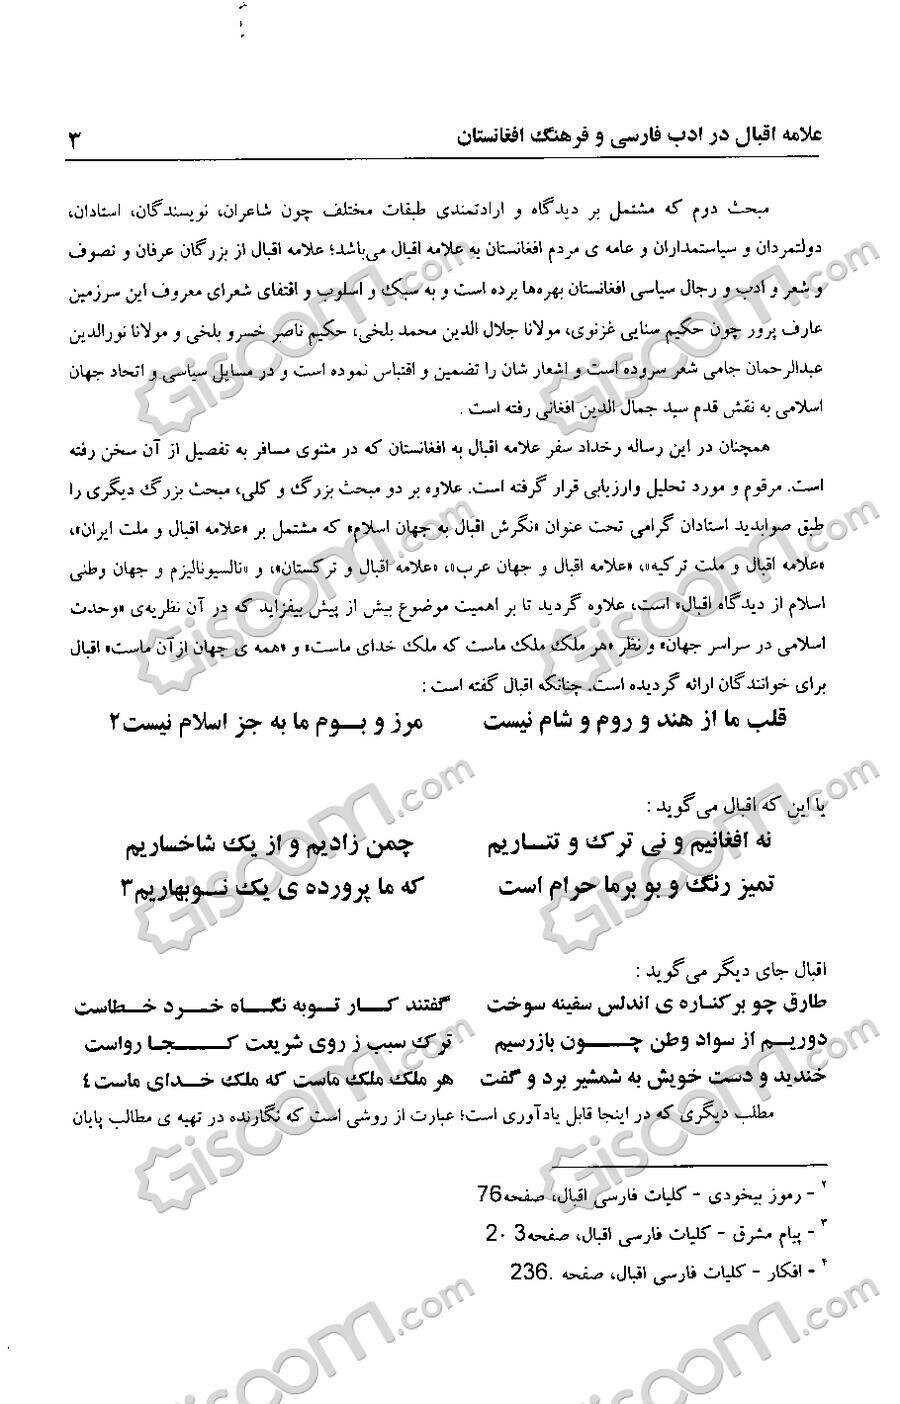 علامه اقبال در ادب فارسی و فرهنگ افغانستان ۳
مبحث دوم که مشتمل بر دیدگاه و ارادتمندی طبقات مختلف چون شاعران، نویسندگان، استادان،
دولتمردان و سیاستمداران و عامه ی مردم افغانستان به علامه اقبال می‌باشد؛ علامه اقبال از بزرگان عرفان و تصوف
و شعر و ادب و رجال سیاسی افغانستان بهره‌ها برده است و به سبک و اسلوب و اقتفای شعرای معروف این سرزمین
عارف پرور چون حکیم سنایی غزنوی، مولانا جلال الدین محمد بلخی، حکیم ناصر خسرو بلخی و مولانا نورالدین
عبدالرحمان جامی شعر سروده است و اشعار شان را تضمین و اقتباس نموده است و در مسایل سیاسی و اتحاد جهان
اسلامی به نقش قدم سید جمال الدین افغانی رفته است .
همچنان در این رساله رخداد سفر علامه اقبال به افغانستان که در مثنوی مسافر به تفصیل از آن سخن رفته
است. مرقوم و مورد تحلیل وارزیابی قرار گرفته است. علاوه بر دو مبحث بزرگ و کلی، مبحث بزرگ دیگری را
طبق صوابدید استادان گرامی تحت عنوان «نگرش اقبال به جهان اسلام» که مشتمل بر «علامه اقبال و ملت ایران»،
«علامه اقبال و ملت ترکیه»، «علامه اقبال و جهان عرب»، «علامه اقبال و ترکستان»، و «نالسیونالیزم و جهان وطنی
اسلام از دیدگاه اقبال» است، علاوه گردید تا بر اهمیت موضوع بیش از پیش بیفزاید که در آن نظریه‌ی «وحدت
اسلامی در سراسر جهان» و نظر «هر ملک ملک ماست که ملک خدای ماست» و «همه ی جهان ازآن ماست» اقبال
برای خوانندگان ارائه گردیده است. چنانکه اقبال گفته است :
قلب ما از هند و روم و شام نیست مرز و بــوم ما به جز اسلام نیست۲
یا این که اقبال می‌گوید :
نه افغانیم و نی ترک و تتــاریم چمن زادیم و از یک شاخساریم
تمیز رنگ و بو برما حرام است که ما پرورده ی یک نــوبهاریم۳
اقبال جای دیگر می‌گوید :
طارق چو برکناره ی اندلس سفینه سوخت گفتند کــار تــوبه نگــاه خــرد خــطاست
دوریــم از سواد وطن چــون بازرسیم ترک سبب ز روی شریعت کــجــا رواست
خندید و دست خویش به شمشیر برد و گفت هر ملک ملک ماست که ملک خــدای ماست۴
مطلب دیگری که در اینجا قابل یادآوری است؛ عبارت از روشی است که نگارنده در تهیه ی مطالب پایان
۲ - رموز بیخودی - کلیات فارسی اقبال، صفحه76
۳ - پیام مشرق - کلیات فارسی اقبال، صفحه3 2۰
۴ - افکار - کلیات فارسی اقبال، صفحه .236
Giscoom.com
Giscoom.com
Giscoom.com
Giscoom.com
Giscoom.com
Giscoom.com
Giscoom.com
Giscoom.com
Giscoom.com
Giscoom.com